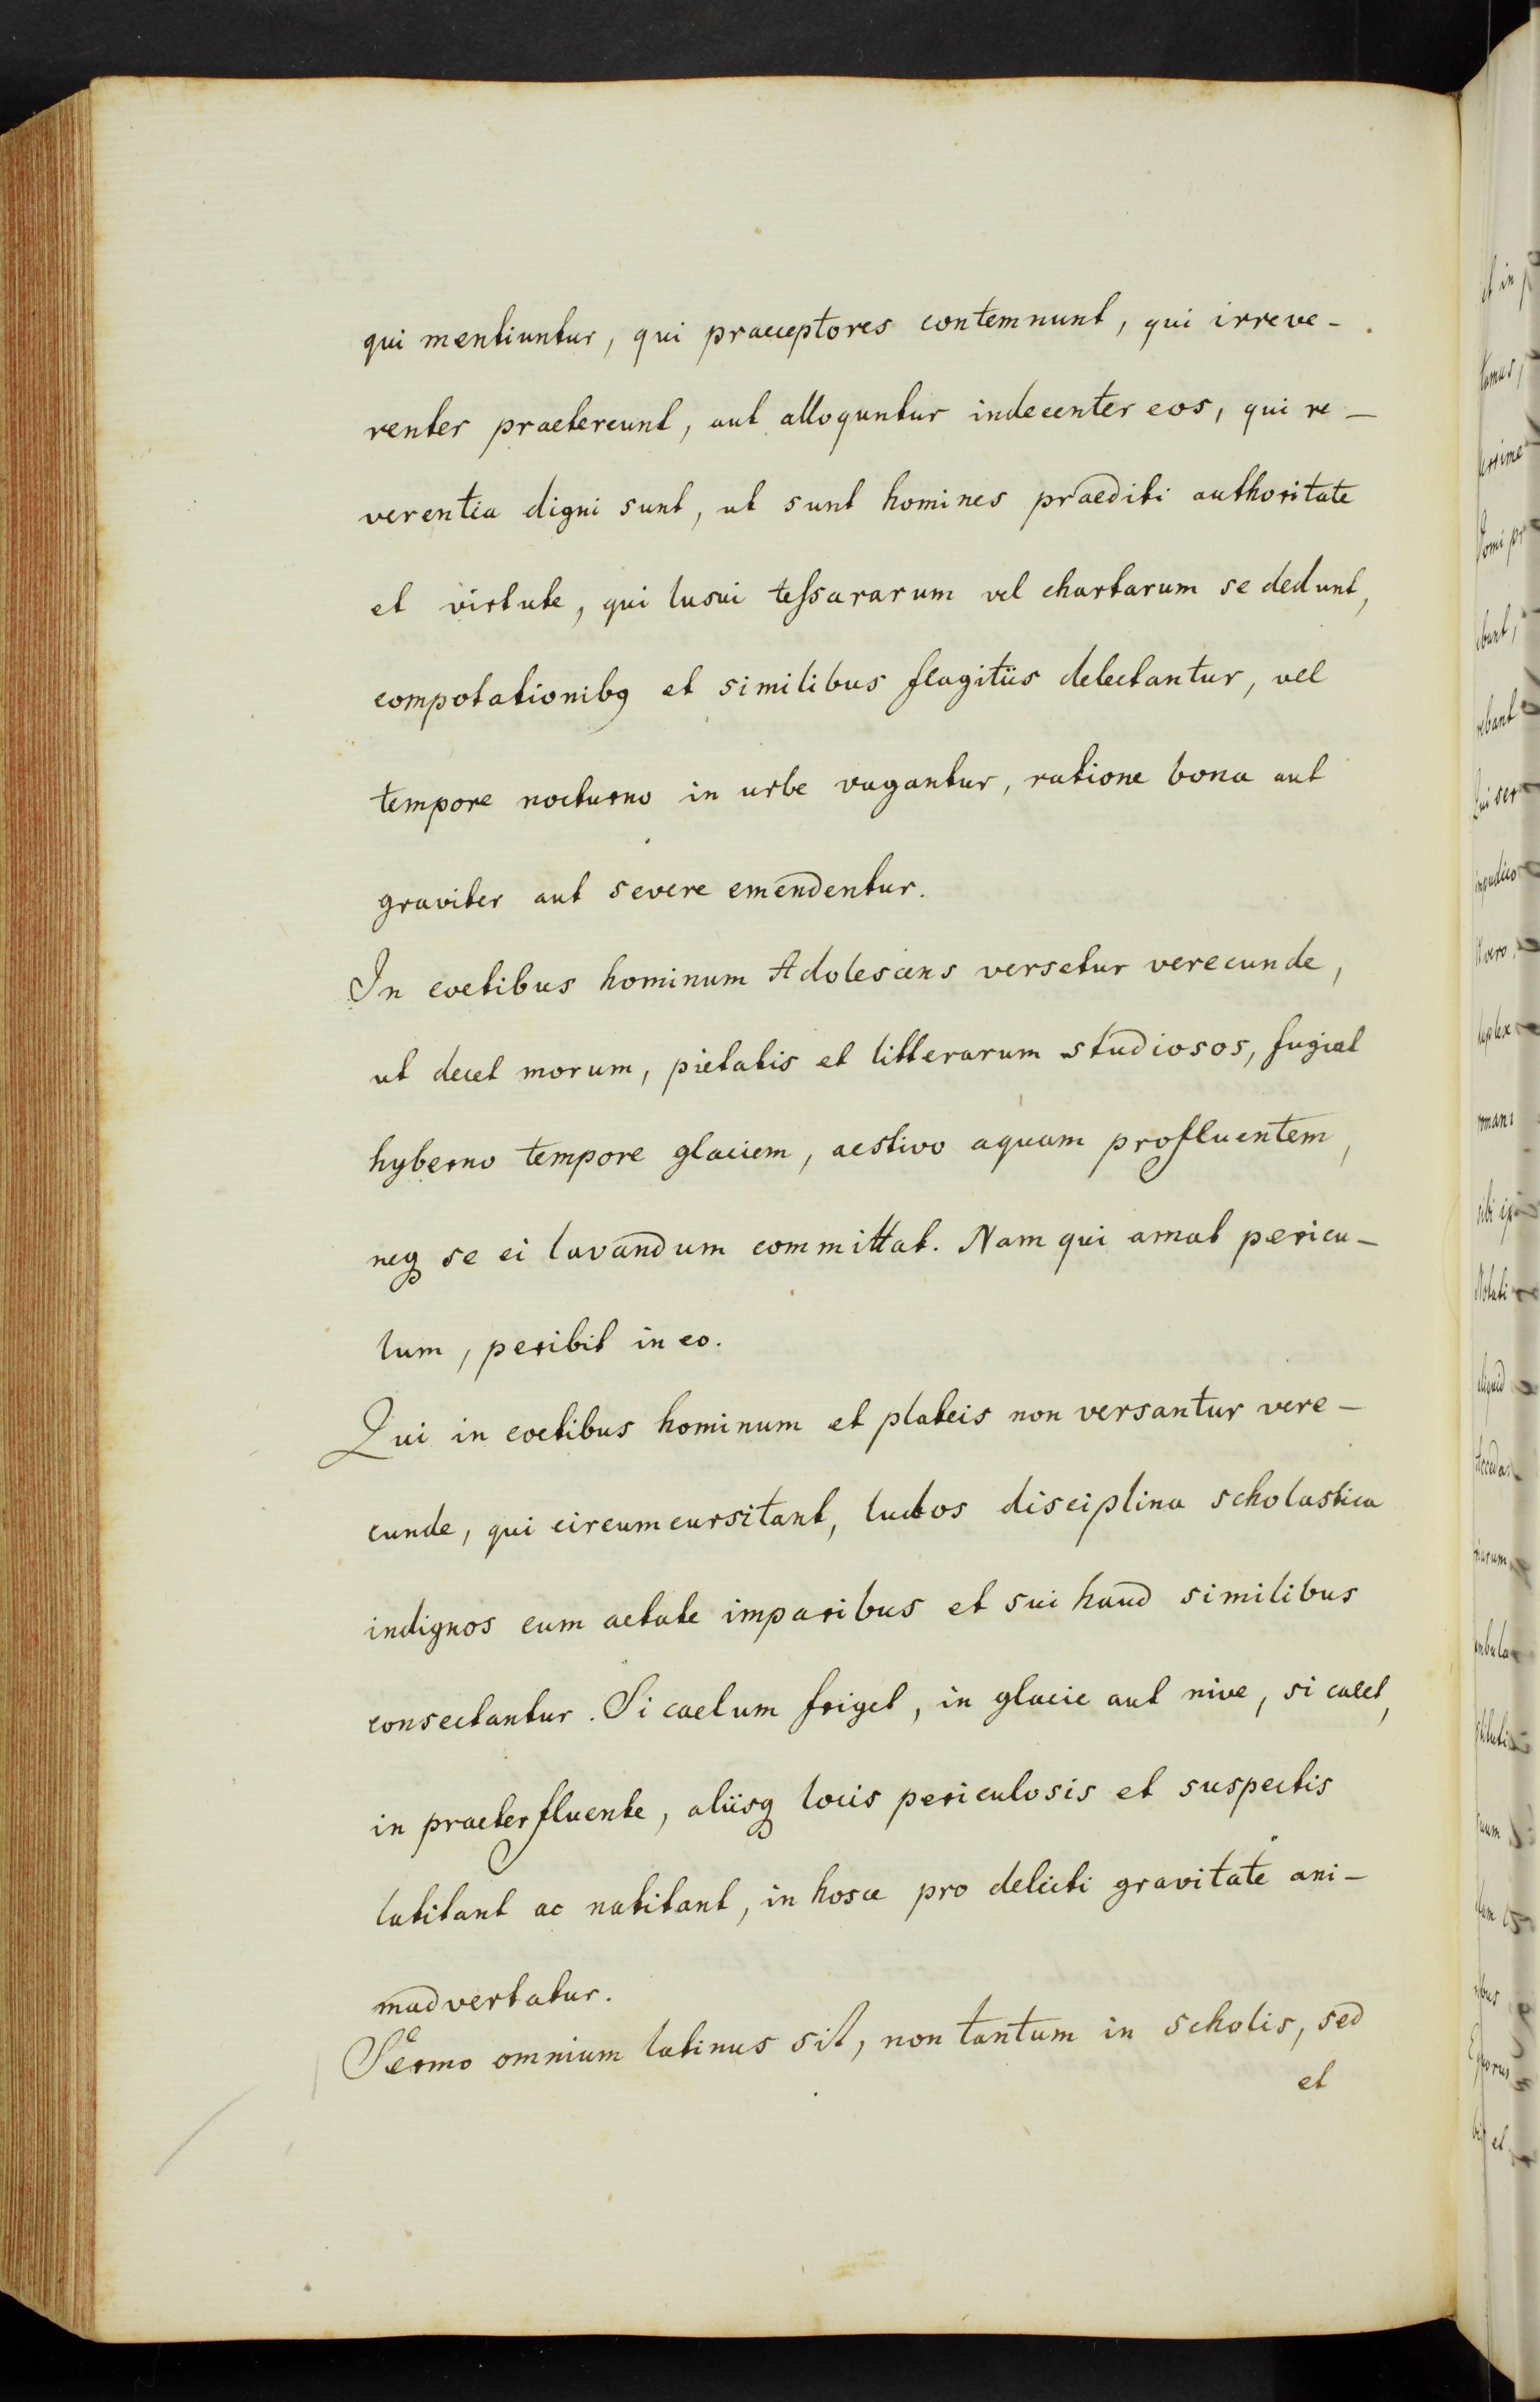 qui mentiuntur, qui praeceptores contemnunt, qui irreve-
renter praetereunt, aut alloquntur indecenter eos, qui re-
verentia digni sunt, ut sunt homines praediti authoritate
et virtute, qui lusui teſsararum vel chartarum se dedunt,
compotationibꝫ et similibus flagitiis delectantur, vel
tempore nocturno in urbe vagantur, ratione bona aut
graviter aut severe emendentur.
In coetibus hominum Adolescens versetur verecunde,
ut decet morum, pietatis et litterarum studiosos, fugiat
hyberno tempore glaciem, aestivo aquam profluentem,
neq se ei lavandum committat. Nam qui amat pericu-
lum, peribit in eo.
Qui in coetibus hominum et plateis non versantur vere-
cunde, qui circumcursitant, ludos disciplina scholastica
indignos cum aetate imparibus et sui haud similibus
consectantur. Si caelum friget, in glacie aut nive, si calet,
in praeterfluente, aliisq locis periculosis et suspectis
latitant ac natitant, in hosce pro delicti gravitate ani-
madvertatur.
Sermo omnium latinus sit, non tantum in scholis, sed
et